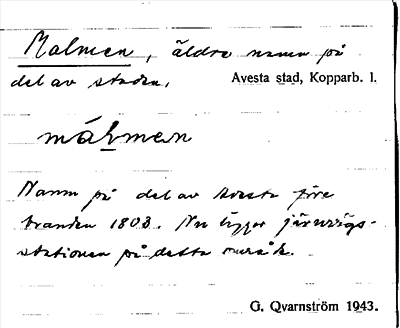 Malmen, äldre namn på
del av staden. Avesta stad, Kopparb. l.
málmen
Namn på del av Avesta före
branden 1803. Nu ligger järnvägs-
stationen på detta område.
G. Qvarnström 1943.